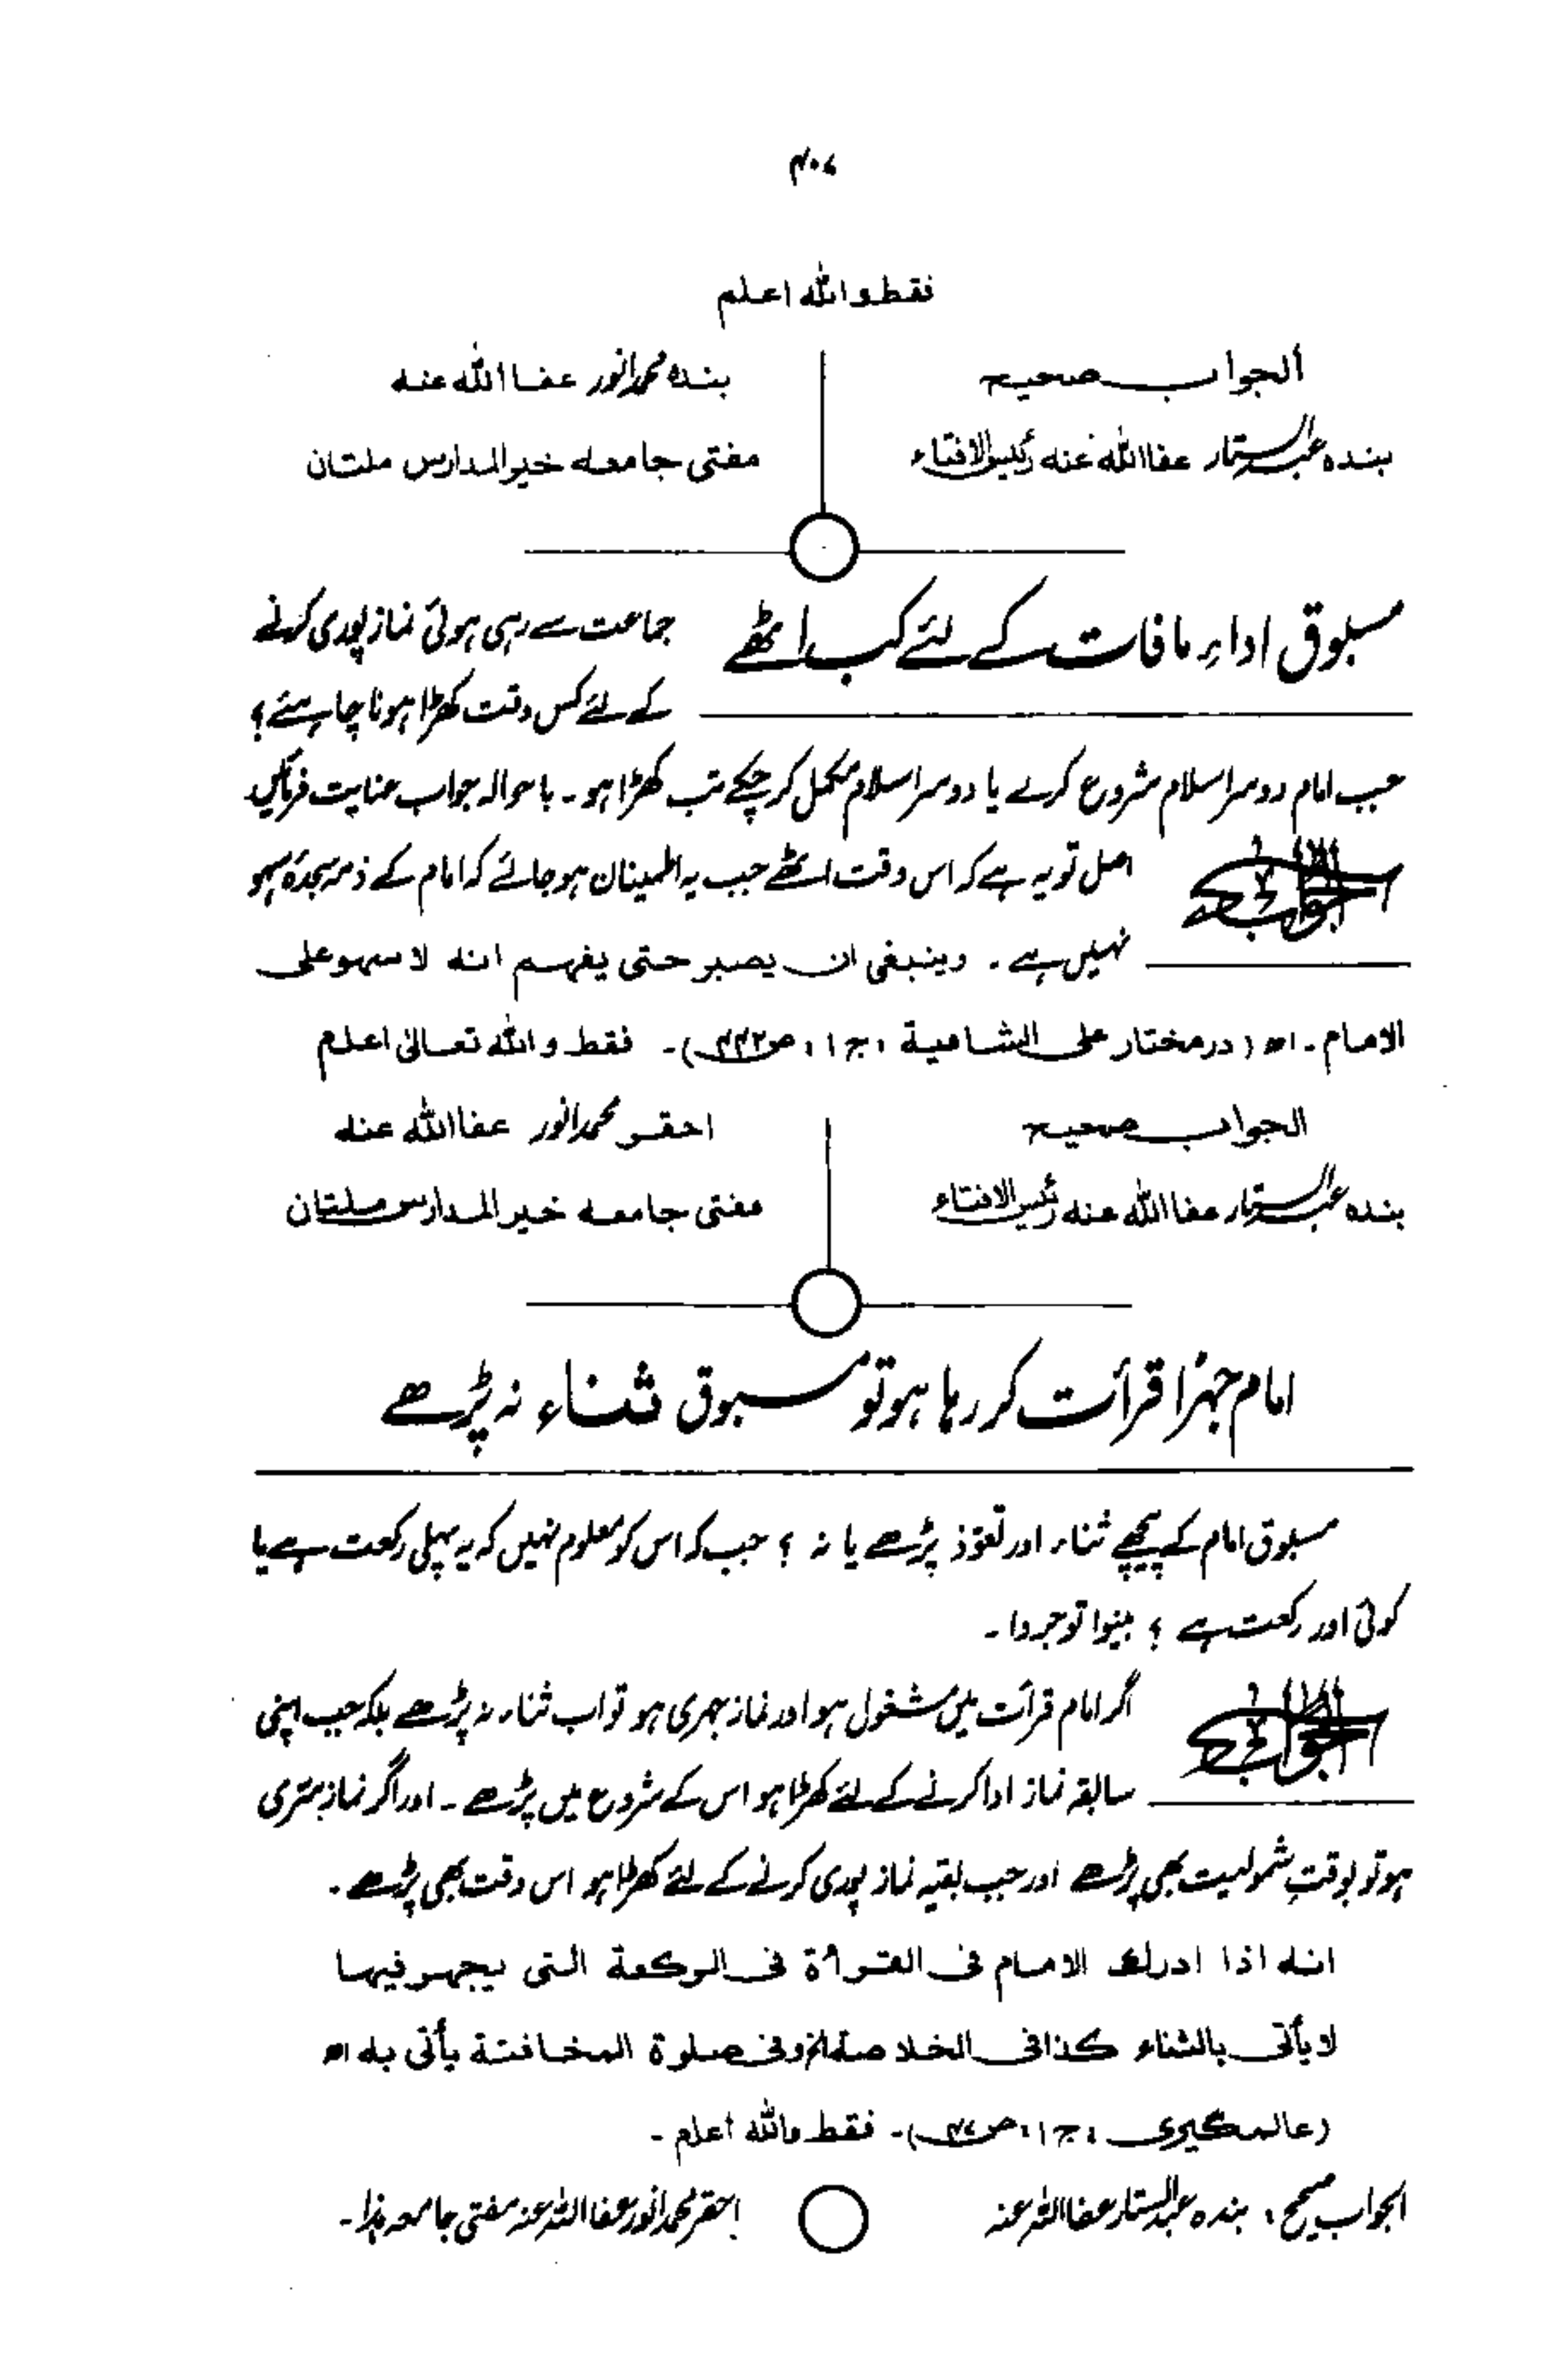 ۴۰۷
فقط واللہ اعلم
الجواب صحیح
بندہ عبدالستار عفا اللہ عنہ رئیس الافتاء
بندہ محمد انور عفا اللہ عنہ
مفتی جامعہ خیر المدارس ملتان
مسبوق اداءِ مافات کے لئے کب اٹھے
جماعت سے رہی ہوئی نماز پوری کرنے
کے لئے کس وقت کھڑا ہونا چاہئے؟
جب امام دوسرا سلام شروع کرے یا دوسرا سلام مکمل کر چکے تب کھڑا ہو۔ باحوالہ جواب عنایت فرمائیں
الجواب
اصل تو یہ ہے کہ اس وقت اٹھے جب یہ اطمینان ہو جائے کہ امام کے ذمہ سجدۂ سہو
نہیں ہے۔ وینبغی ان یصبر حتی یفہم انہ لا سہو علی
الامام۔ اھ (درمختار علی الشامیۃ ، ج ۱ ، ص)۔ فقط واللہ تعالیٰ اعلم
الجواب صحیح
بندہ عبدالستار عفا اللہ عنہ رئیس الافتاء
احقر محمد انور عفا اللہ عنہ
مفتی جامعہ خیر المدارس ملتان
امام جہرًا قرأت کر رہا ہو تو مسبوق ثناء نہ پڑھے
مسبوق امام کے پیچھے ثناء اور تعوّذ پڑھے یا نہ ؟ جب کہ اس کو معلوم نہیں کہ یہ پہلی رکعت ہے یا
کوئی اور رکعت ہے ؟ بینوا توجروا ۔
الجواب
اگر امام قرأت میں مشغول ہو اور نماز جہری ہو تو اب ثناء نہ پڑھے بلکہ جب اپنی
سابقہ نماز ادا کرنے کے لئے کھڑا ہو اس کے شروع میں پڑھے ۔ اور اگر نماز سِرّی
ہو تو بوقتِ شمولیت بھی پڑھے اور جب بقیہ نماز پوری کرنے کے لئے کھڑا ہو اس وقت بھی پڑھے ۔
انہ اذا ادرک الامام فی القرأۃ فی الرکعۃ التی یجہر فیہا
لا یأتی بالثناء کذا فی الخلاصۃ الخ وفی صلوۃ المخافتۃ یأتی بہ اھ
(عالمگیری ، ج ۱ ، ص)۔ فقط واللہ اعلم ۔
الجواب صحیح ، بندہ عبدالستار عفا اللہ عنہ
احقر محمد انور عفا اللہ عنہ مفتی جامعہ ہذا ۔